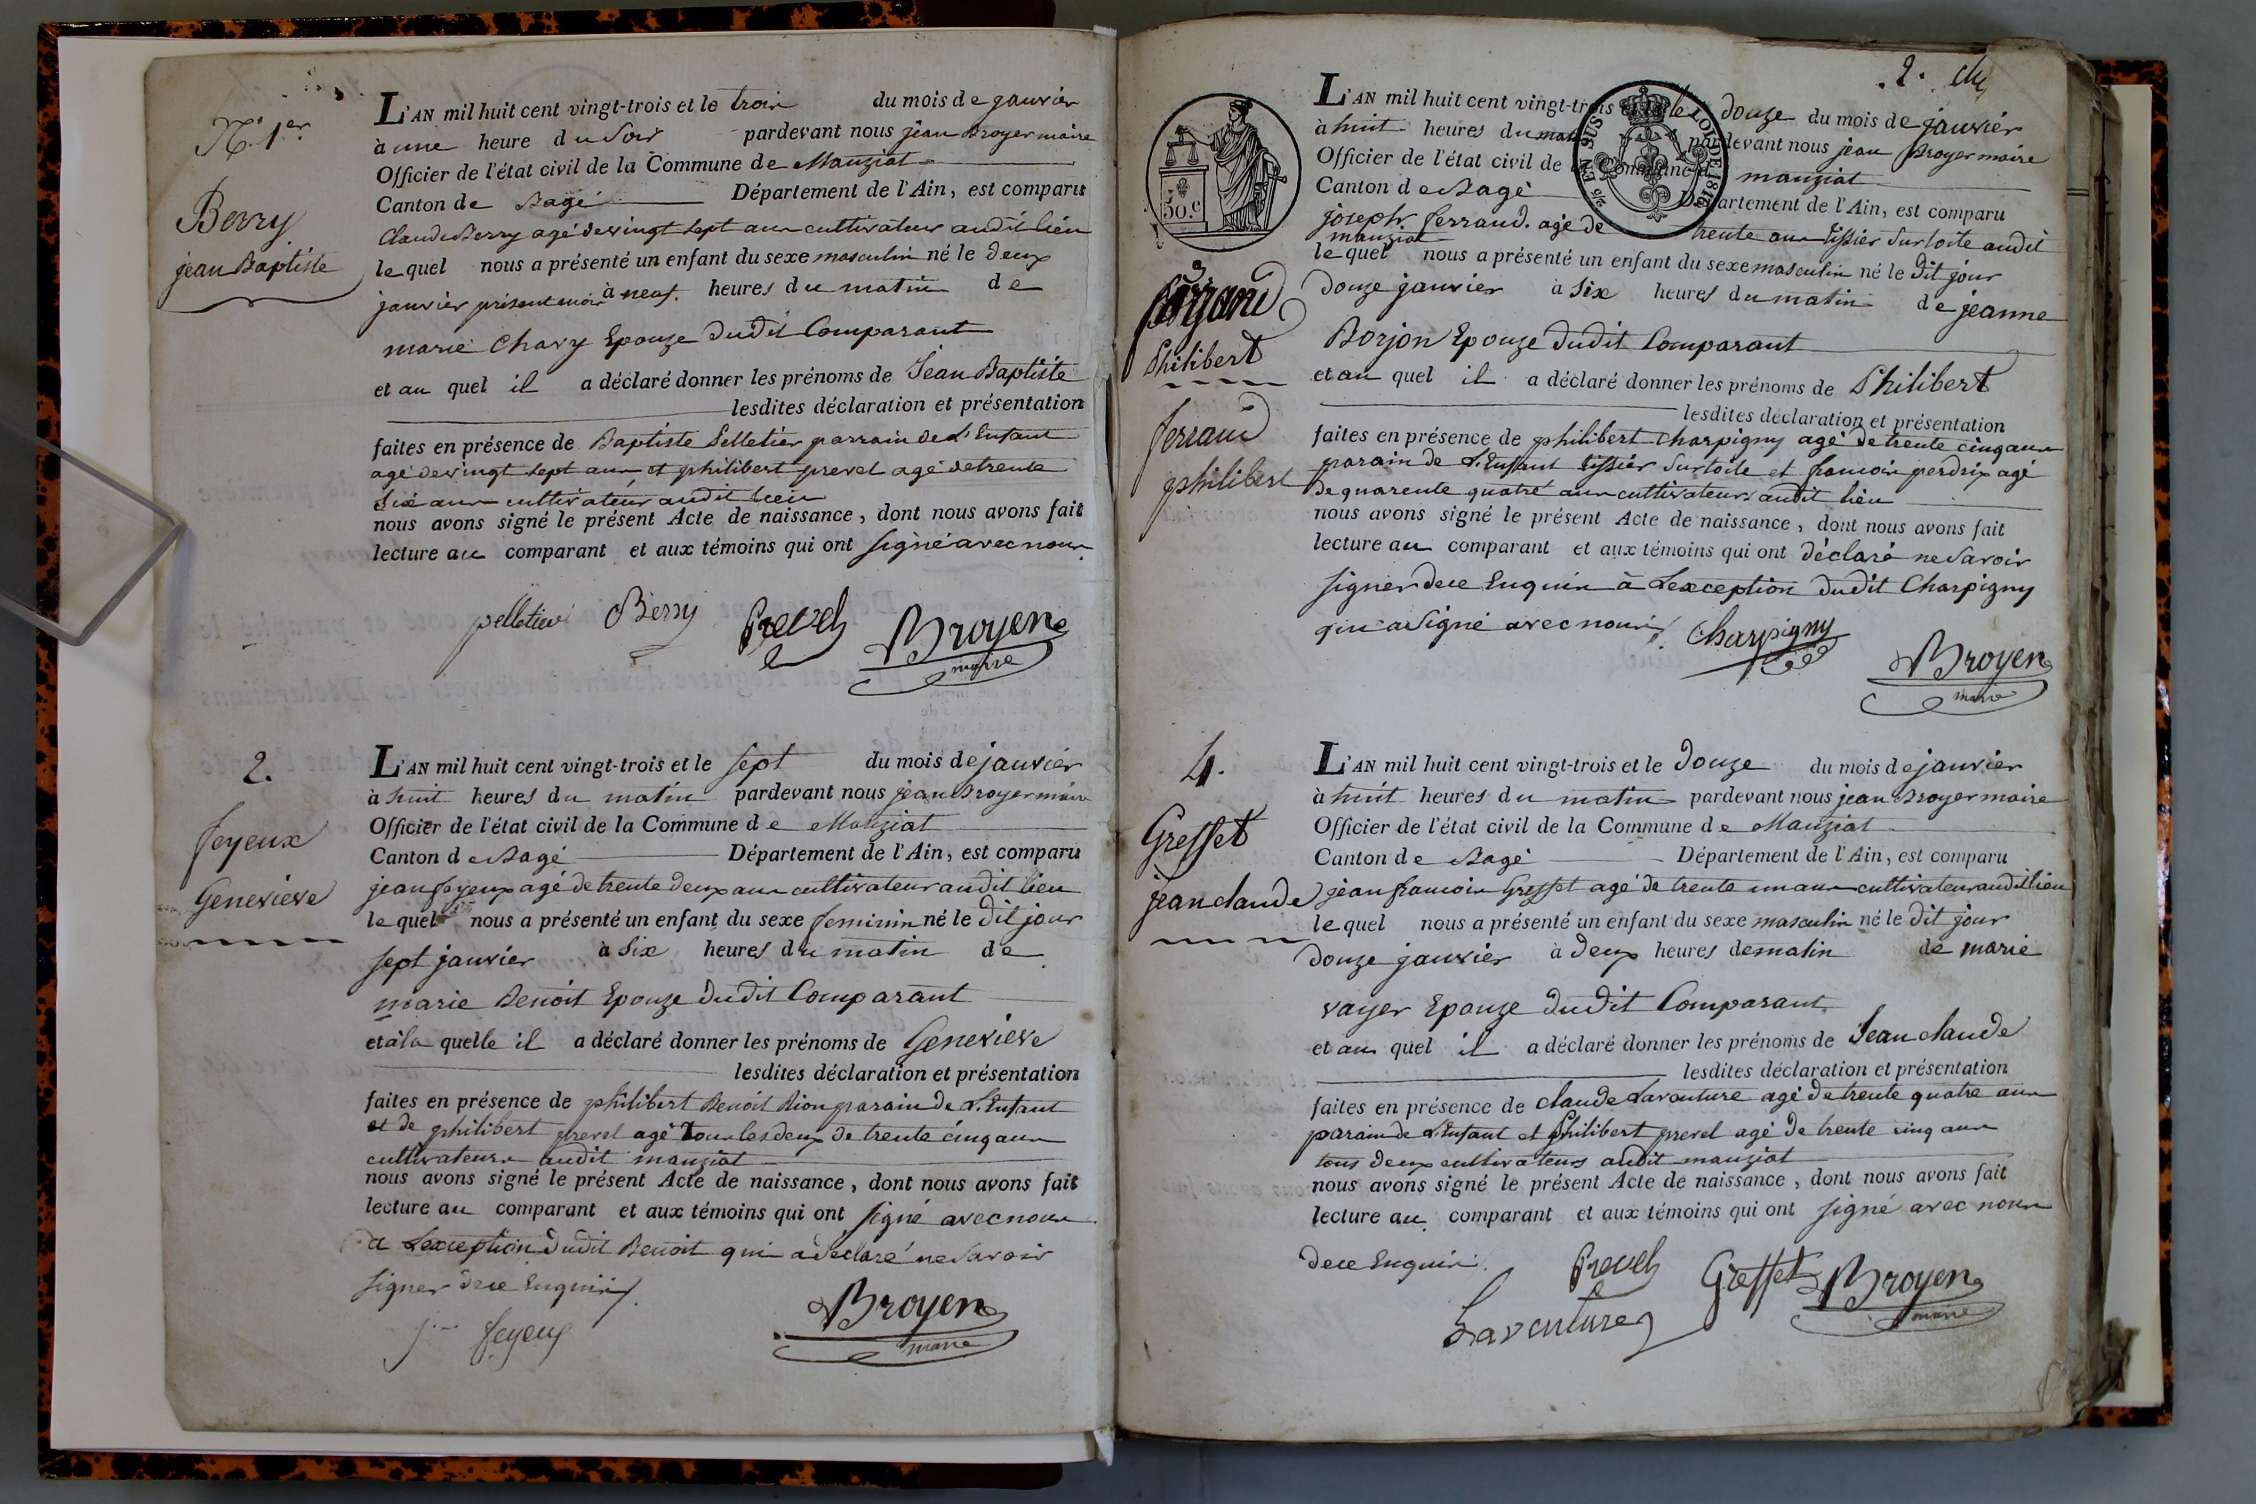 N.º 1.er
Berry
jean Baptiste
L'AN mil huit cent vingt-trois et le trois du mois de janvier
à une heure du Soir pardevant nous jean Broyer maire
Officier de l'état civil de la Commune de Manziat
Canton de Bagé Département de l'Ain, est comparu
Claude Berry agé de vingt sept ans cultivateur audit lieu
lequel nous a présenté un enfant du sexe masculin né le deux
janvier présent mois à neuf heures du matin de
marie Chavy Epouze dudit Comparant
et au quel il a déclaré donner les prénoms de Jean Baptiste
lesdites déclaration et présentation
faites en présence de Baptiste Pelletier parrain de L'Enfant
agé de vingt sept ans et philibert prevel agé de trente
Six ans cultivateur audit lieu
nous avons signé le présent Acte de naissance, dont nous avons fait
lecture au comparant et aux témoins qui ont signé avec nous
pelletier Berry Prevel Broyer
maire
2.
feyeux
Genevieve
L'AN mil huit cent vingt-trois et le sept du mois de janvier
à huit heures du matin pardevant nous jean Broyer maire
Officier de l'état civil de la Commune de Manziat
Canton de Bagé Département de l'Ain, est comparu
jean feyeux agé de trente deux ans cultivateur audit lieu
lequel nous a présenté un enfant du sexe feminin né le dit jour
sept janvier à Six heures du matin de
marie Benoit Epouze dudit Comparant
et à la quelle il a déclaré donner les prénoms de Genevieve
lesdites déclaration et présentation
faites en présence de philibert Benoit Rion parain de L'Enfant
et de philibert prevel agé tous les deux de trente cinq ans
cultivateurs audit manziat
nous avons signé le présent Acte de naissance, dont nous avons fait
lecture au comparant et aux témoins qui ont signé avec nous
a Lexception dudit Benoit qui a déclaré ne Savoir
signer dece Enquis
feyeux Broyer
maire
2.
30.c
25 EN SUS
LOI DE 1816
Philibert
ferraud
philibert
L'AN mil huit cent vingt-trois et le douze du mois de janvier
à huit heures du matin pardevant nous jean Broyer maire
Officier de l'état civil de la Commune de manziat
Canton de Bagé Département de l'Ain, est comparu
joseph ferraud agé de trente ans tissier Sur toile audit
manziat
lequel nous a présenté un enfant du sexe masculin né le dit jour
douze janvier à Six heures du matin de jeanne
Borjon Epouze dudit Comparant
et au quel il a déclaré donner les prénoms de Philibert
lesdites déclaration et présentation
faites en présence de philibert Charpigny agé de trente cinq ans
parain de L'Enfant tissier Sur toile et francois perdrix agé
de quarente quatre ans cultivateurs audit lieu
nous avons signé le présent Acte de naissance, dont nous avons fait
lecture au comparant et aux témoins qui ont déclaré ne Savoir
signer dece Enquis à Lexception dudit Charpigny
qui a Signé avec nous
Charpigny Broyer
maire
4.
Greffet
jean claude
L'AN mil huit cent vingt-trois et le douze du mois de janvier
à huit heures du matin pardevant nous jean Broyer maire
Officier de l'état civil de la Commune de Manziat
Canton de Bagé Département de l'Ain, est comparu
jean francois Greffet agé de trente un ans cultivateur audit lieu
lequel nous a présenté un enfant du sexe masculin né le dit jour
douze janvier à deux heures de matin de marie
vayer Epouze dudit Comparant
et au quel il a déclaré donner les prénoms de Jean claude
lesdites déclaration et présentation
faites en présence de claude Laventure agé de trente quatre ans
parain de L'Enfant et Philibert prevel agé de trente cinq ans
tous deux cultivateurs audit manziat
nous avons signé le présent Acte de naissance, dont nous avons fait
lecture au comparant et aux témoins qui ont signé avec nous
dece Enquis
Prevel Greffet Broyer
maire
Laventure